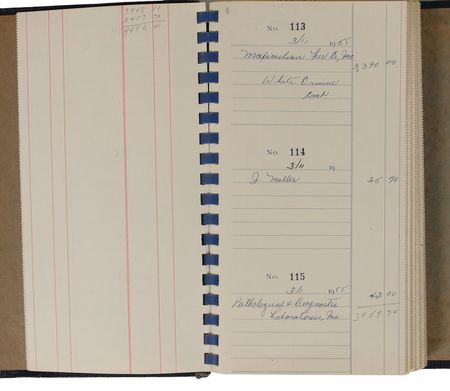 7905 11
3457 70
4450 41
No. 113
3/11 1955
Maximilian Fur Co, Inc
3,390 00
White Ermine
Coat
No. 114
3/11 19
J Miller
25 70
No. 115
3/1 1955
42 00
Pathological & Diagnostic
Laboratories, Inc
3457 70